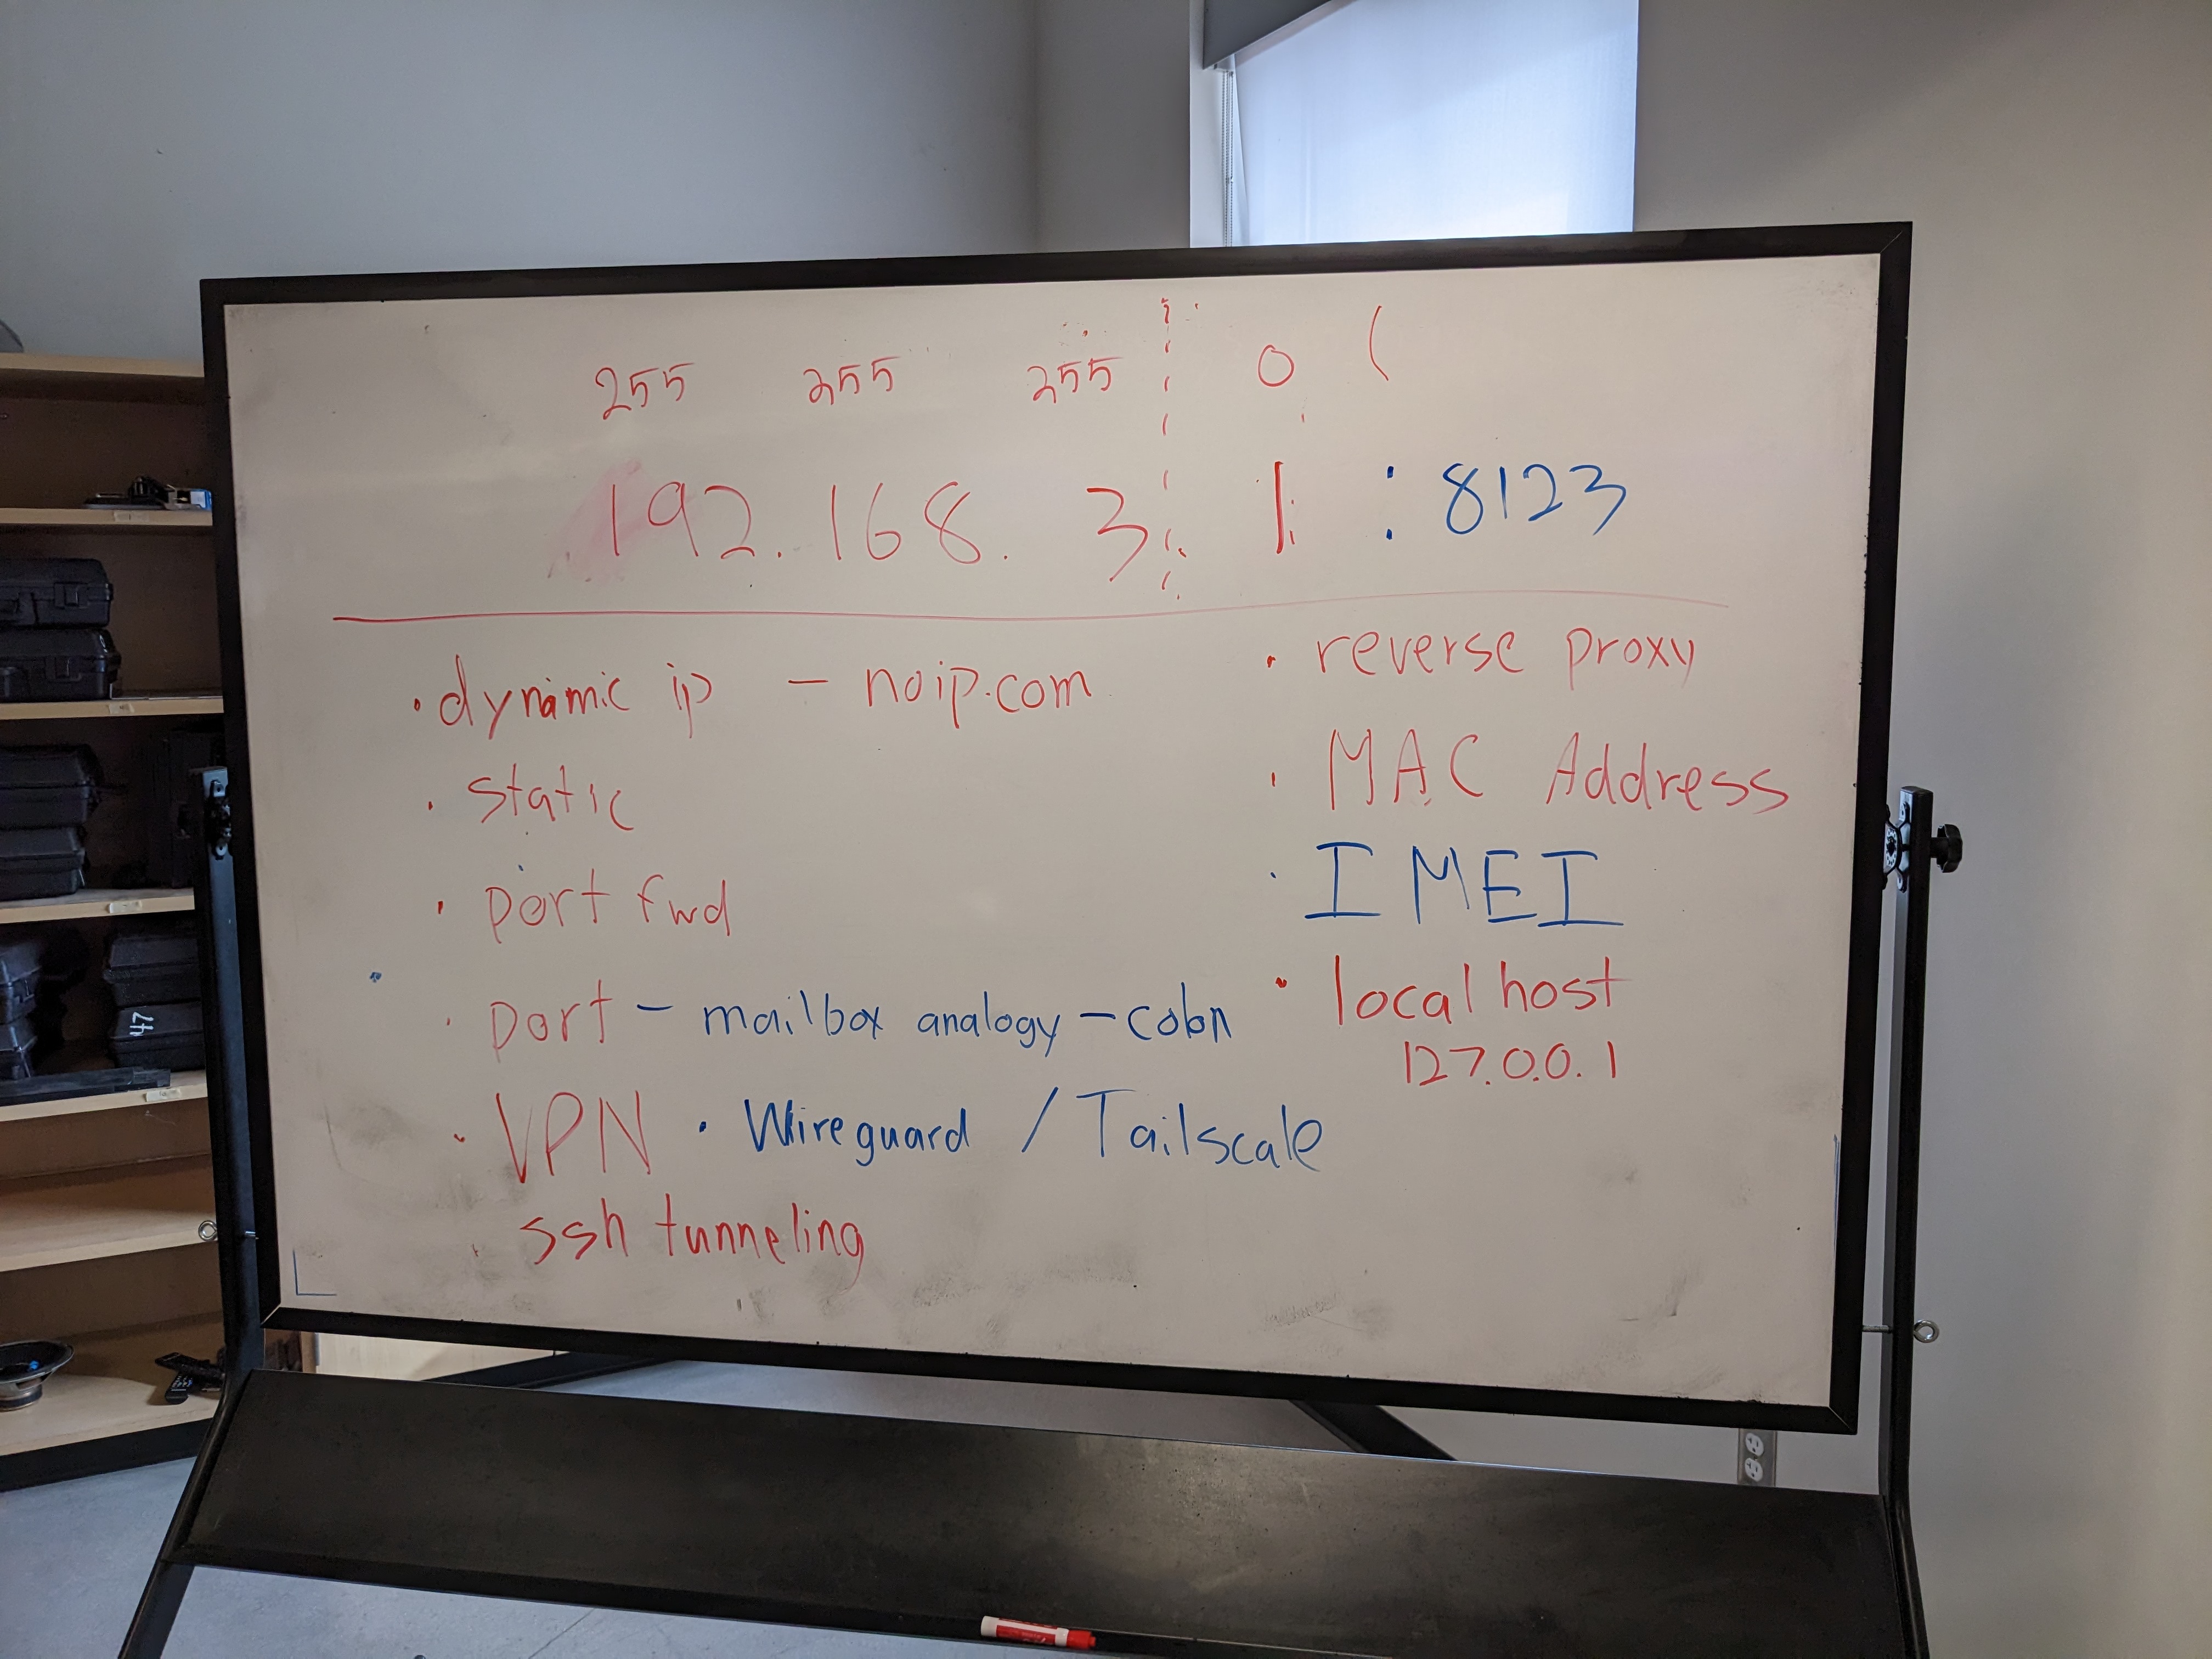 255 255 255 0 (
192.168. 3. 1 : 8123
· dynamic ip – noip.com
· static
· port fwd
· port – mailbox analogy – colon
· VPN · Wireguard / Tailscale
ssh tunneling
· reverse proxy
· MAC Address
· IMEI
· local host
127.0.0.1
47